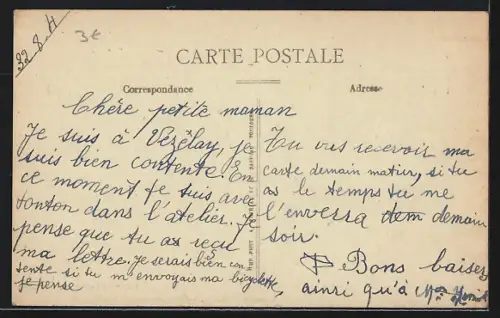 3€
CARTE POSTALE
Correspondance
Adresse
Chère petite maman
Je suis à Vezelay, je
suis bien contente. En
ce moment je suis avec
tonton dans l'atelier. Je
pense que tu as reçu
ma lettre. Je serais bien con
tente si tu m'envoyais ma bicyclette
je pense
Tu vas recevoir ma
carte demain matin, si tu
as le temps tu me
l'enverra dem demain
soir.
Bons baisers
ainsi qu'à